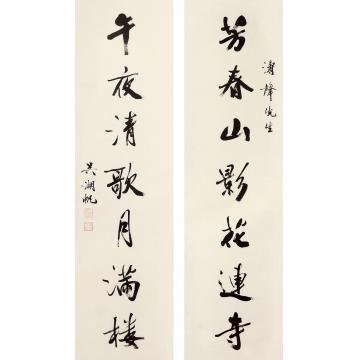 芳春山影花連寺
濬聲先生
午夜清歌月滿樓
吳湖帆